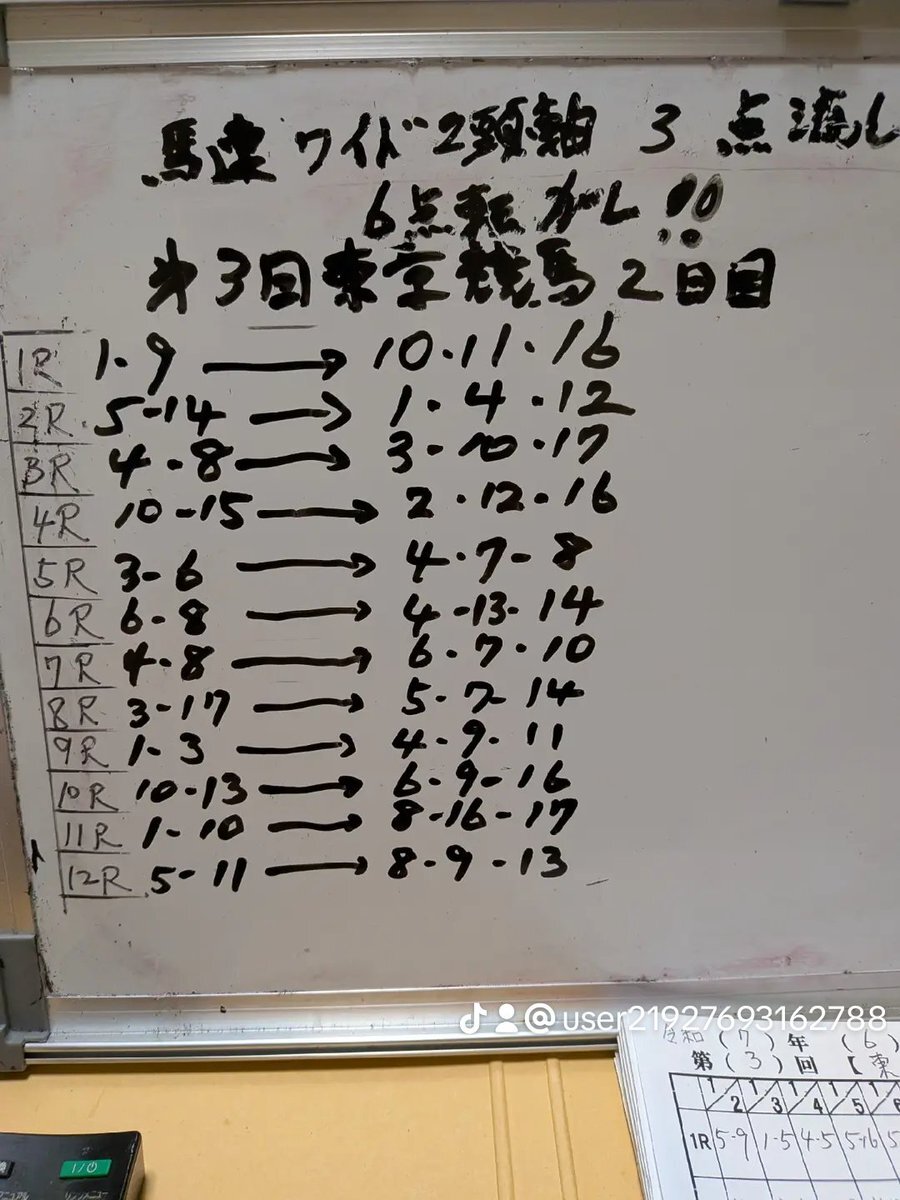 馬連ワイド2頭軸 3点流し
6点転がし!!
第3回東京競馬2日目
1R 1-9 → 10・11・16
2R 5-14 → 1・4・12
3R 4-8 → 3-10・17
4R 10-15 → 2・12-16
5R 3-6 → 4・7-8
6R 6-8 → 4-13-14
7R 4-8 → 6・7・10
8R 3-17 → 5-7-14
9R 1-3 → 4-9-11
10R 10-13 → 6-9-16
11R 1-10 → 8-16-17
12R 5-11 → 8-9-13
@user21927693162788
令和(7)年(6)
第(3)回【東
1/2 1/3 1/4 1/5 1/6
1R 5-9 1-5 4-5 5-16 5
I/⏻
リンメニュー